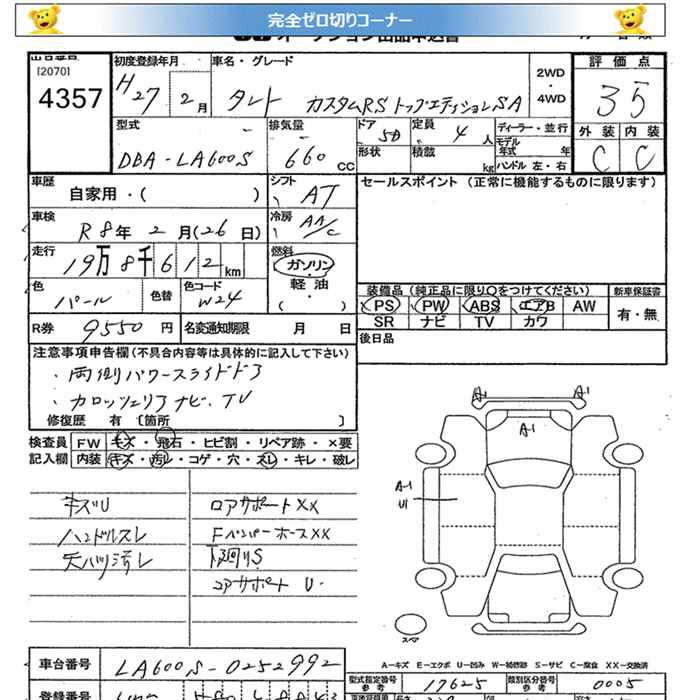 完全ゼロ切りコーナー
[2070]
4357
初度登録年月
H27 2月
車名・グレード
タント カスタムRS トップエディションSA
2WD
・
4WD
評価点
35
外装 内装
C C
型式
DBA-LA600S
排気量
660 CC
ドア
5D
形状
定員
4人
積載
kg
ディーラー・並行
モデル年式 年
ハンドル 左・右
車歴
自家用・( )
シフト
AT
車検
R8年2月(26日)
冷房
AA/C
走行
19万8千612km
燃料
ガソリン
軽油
( )
色
パール
色替
色コード
W24
R券
9550円
名変通知期限 月 日
セールスポイント (正常に機能するものに限ります)
装備品 (純正品に限り○をつけてください)
PS PW ABS エアB AW
SR ナビ TV カワ
新車保証書
有・無
後日品
注意事項申告欄(不具合内容等は具体的に記入して下さい)
・両側パワースライドドア
・カロッツェリアナビ、TV
修復歴 有 〔箇所 〕
検査員 FW キズ・飛石・ヒビ割・リペア跡・×要
記入欄 内装 キズ・汚レ・コゲ・穴・スレ・キレ・破レ
キズU
ハンドルスレ
ロアサポートXX
FバンパーホースXX
下回りS
コアサポート U
A-1
A-1
A-1
A-1
U1
スペア
A-キズ E-エクボ U-凹み W-補修跡 S-サビ C-腐食 XX-交換済
車台番号
LA600S-0252992
型式指定番号
参考
17625
類別区分番号
参考
0005
登録番号